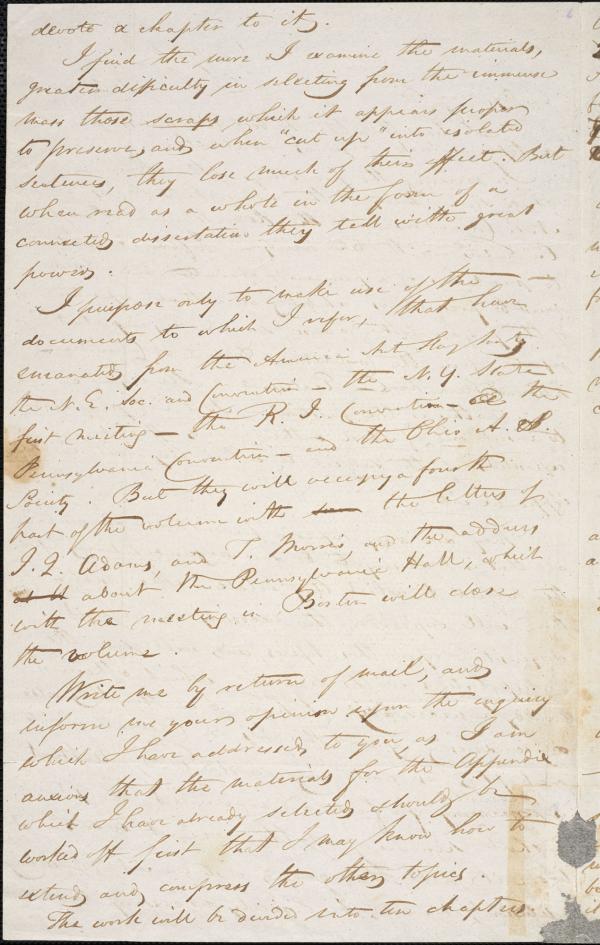 devote a chapter to it.
I find the more I examine the materials,
greater difficulty in selecting from the immense
mass those scraps which it appears proper
to preserve, and when "cut up" into isolated
sentences, they lose much of their effect. But
when read as a whole in the form of a
connected dissertation they tell with great
power.
I purpose only to make use of the
documents to which I refer, that have
emanated from the America Ant Slay Socty
the N. E. Soc. and Convention — the N. Y. State
first meeting — the R. I. Convention — the
Pennsylvania Convention — and the Ohio A. S.
Society. But they will occupy a fourth
part of the volume with the letters of
J. Q. Adams, and T. Morris, and the address
about the Pennsylvania Hall, which
with the meeting in Boston will close
the volume.
Write me by return of mail, and
inform me your opinion upon the inquiry
which I have addressed to you, as I am
anxious that the materials for the Appendix
which I have already selected should be
worked off first that I may know how to
extend and compress the other topics.
The work will be divided into ten chapters.